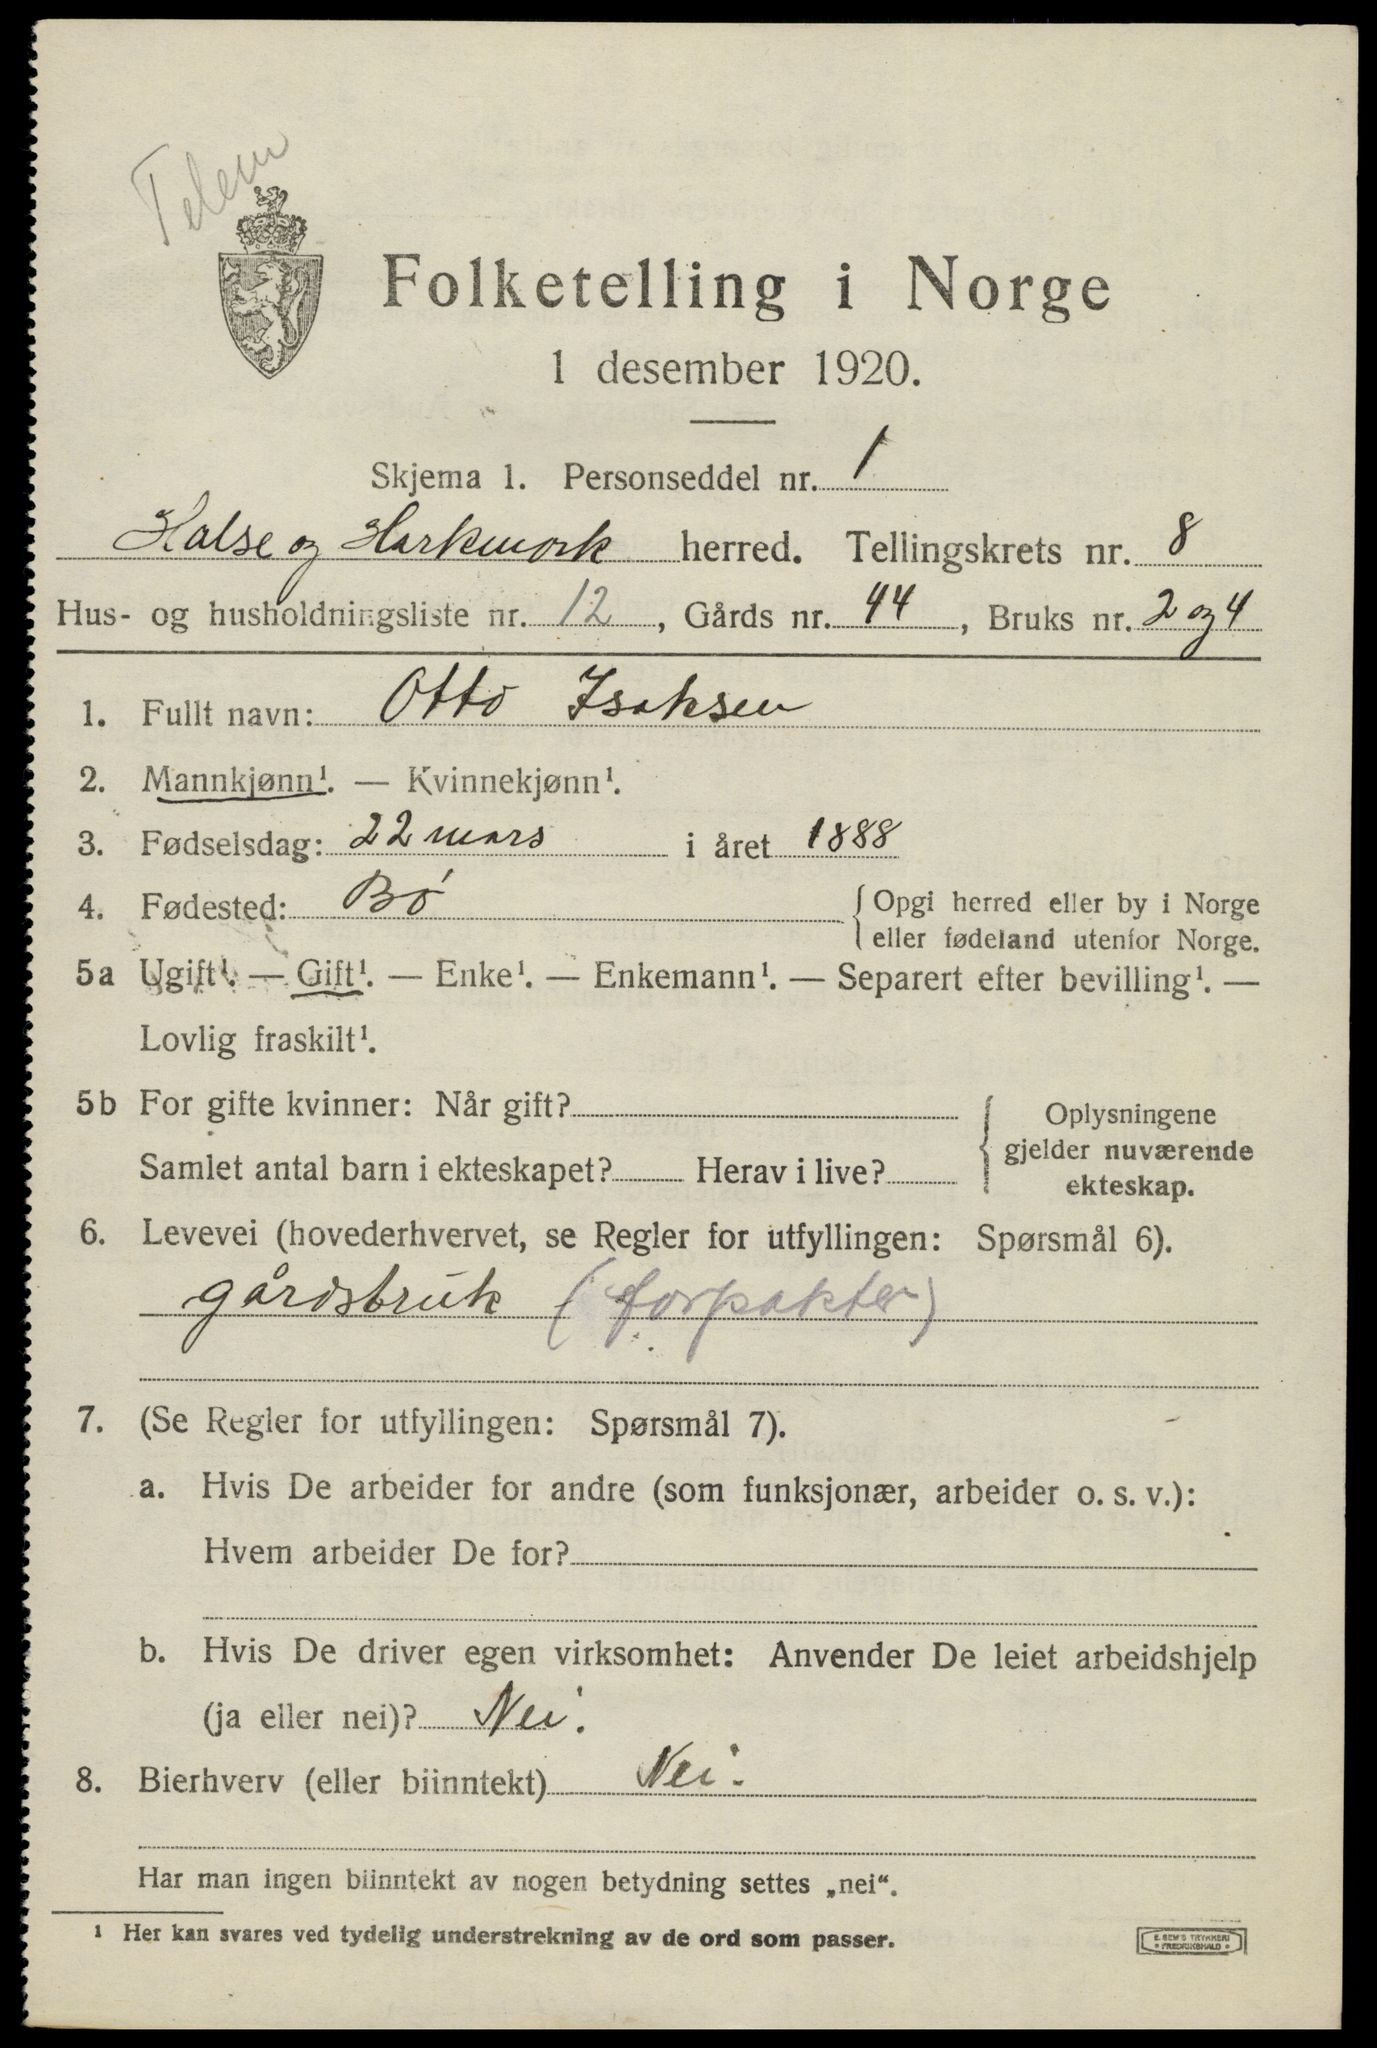 Telem
Folketelling i Norge
1 desember 1920.
Skjema 1. Personseddel nr. 1
Halse og Harkmork herred. Tellingskrets nr. 8
Hus- og husholdningsliste nr. 12, Gårds nr. 44, Bruks nr. 2 og 4
1. Fullt navn: Otto Isaksen
2. Mannkjønn¹. — Kvinnekjønn¹.
3. Fødselsdag: 22 mars i året 1888
4. Fødested: Bø { Opgi herred eller by i Norge
eller fødeland utenfor Norge.
5a Ugift¹. — Gift¹. — Enke¹. — Enkemann¹. — Separert efter bevilling¹. —
Lovlig fraskilt¹.
5b For gifte kvinner: Når gift?
Samlet antal barn i ekteskapet? Herav i live?
Oplysningene
gjelder nuværende
ekteskap.
6. Levevei (hovederhvervet, se Regler for utfyllingen: Spørsmål 6).
gårdsbruk (forpakter)
7. (Se Regler for utfyllingen: Spørsmål 7).
a. Hvis De arbeider for andre (som funksjonær, arbeider o. s. v.):
Hvem arbeider De for?
b. Hvis De driver egen virksomhet: Anvender De leiet arbeidshjelp
(ja eller nei)? Nei.
8. Bierhverv (eller biinntekt) Nei.
Har man ingen biinntekt av nogen betydning settes „nei“.
¹ Her kan svares ved tydelig understrekning av de ord som passer.
E. SEM'S TRYKKERI
• FREDRIKSHALD •